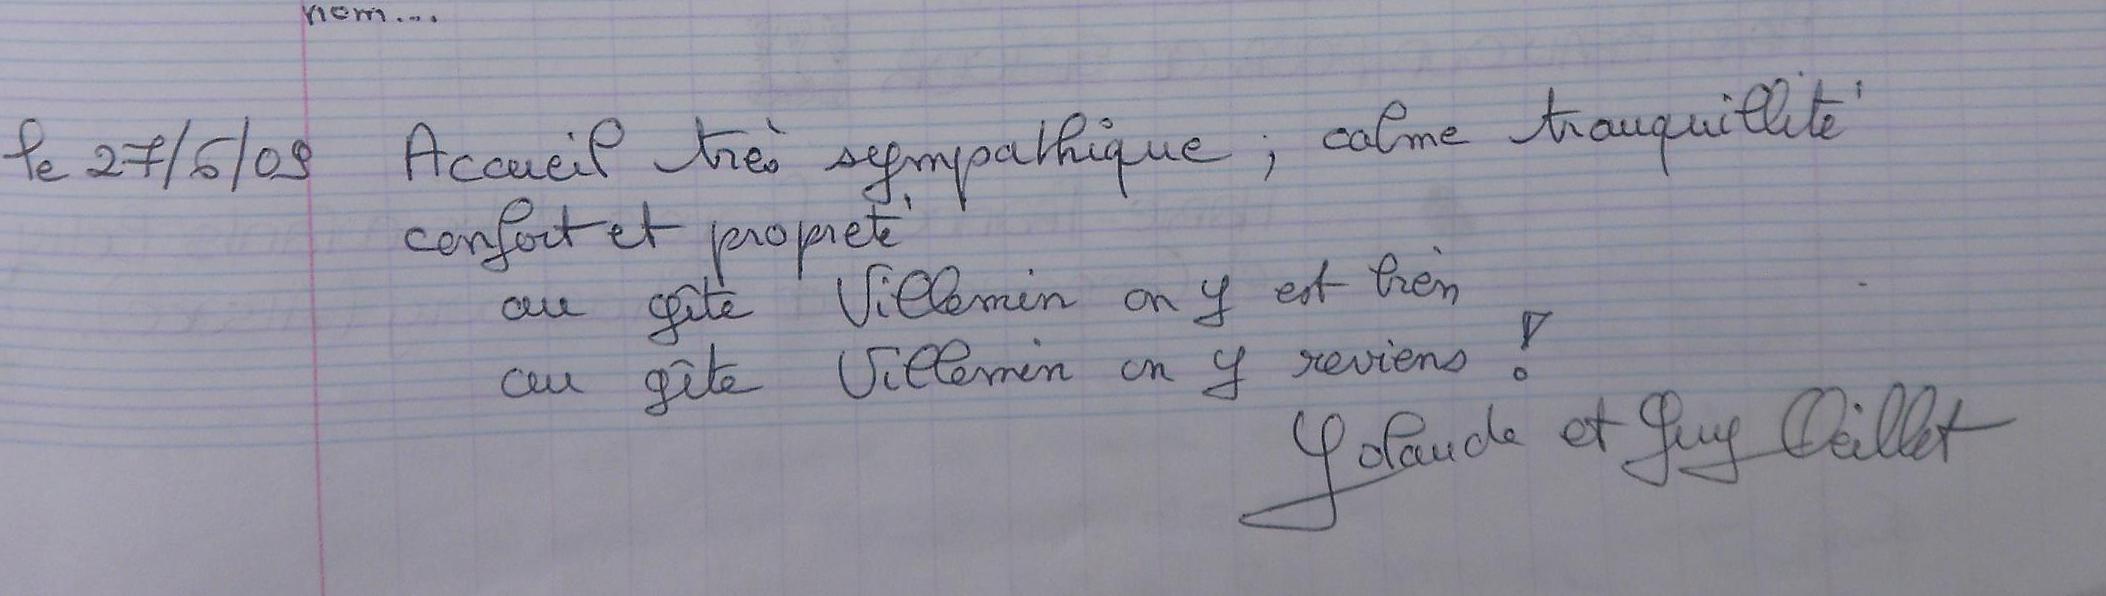 nom...
le 27/6/09 Accueil très sympathique, calme tranquillité
confort et propreté
au gîte Villemin on y est bien
au gîte Villemin on y reviens !
Yolande et Guy Oeillet